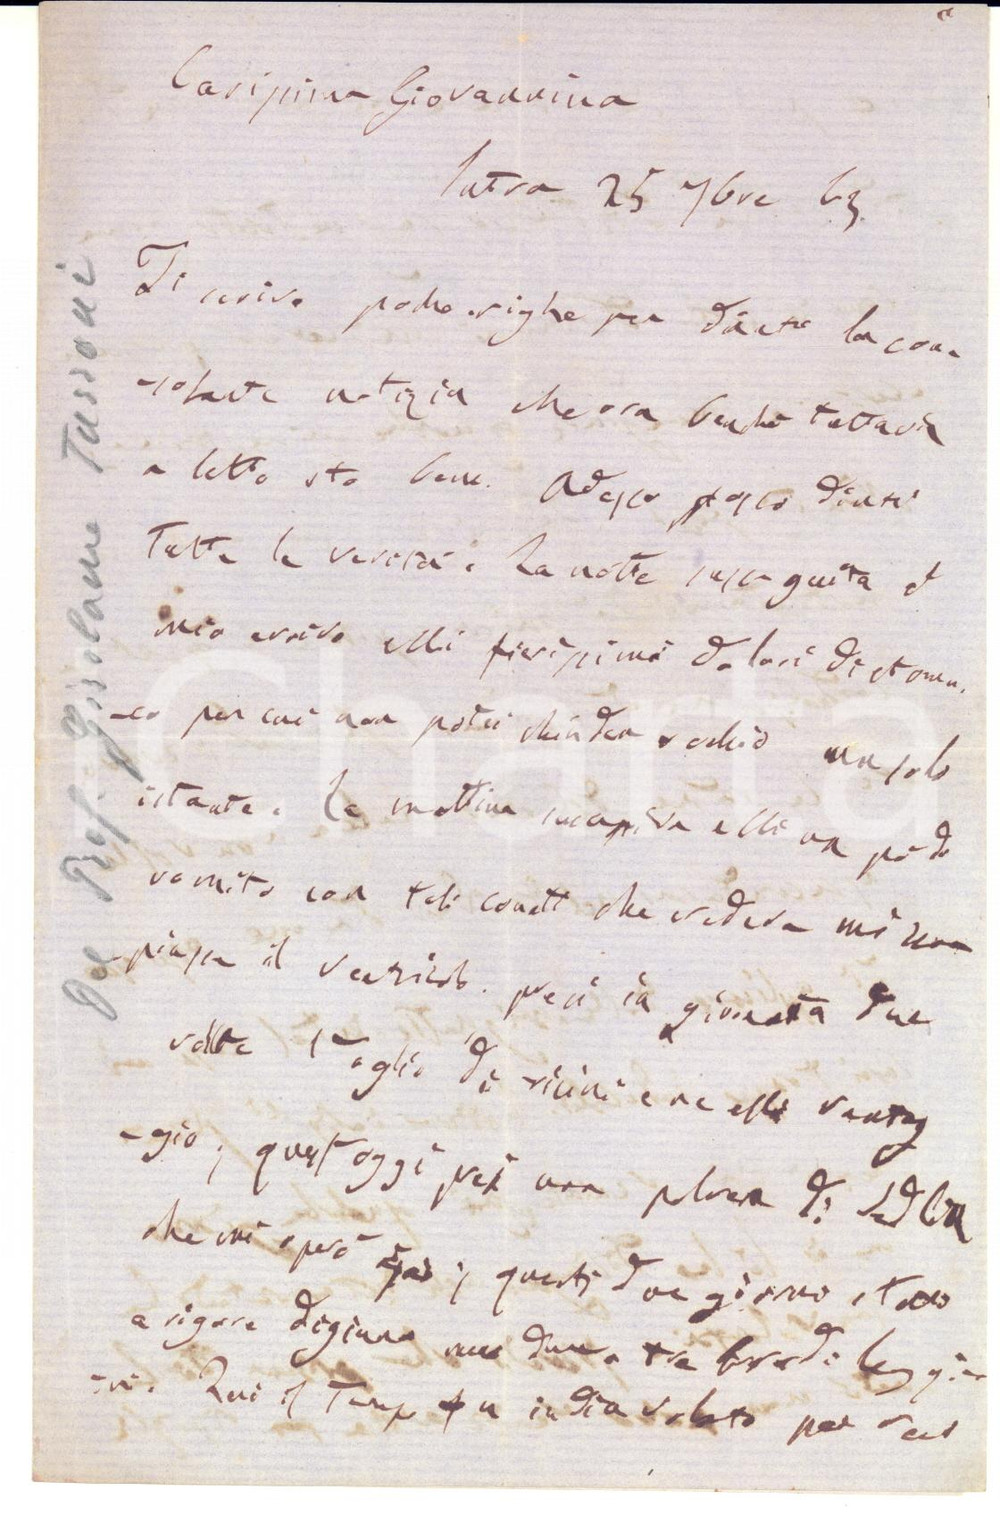 Carissima Giovannina
Intra 25 7bre 63
Ti scrivo poche righe per darti la con-
-solante notizia che ora benché tuttavia
a letto sto bene. Adesso posso dirti
tutta la verità. La notte susseguita al
mio arrivo ebbi fierissimi dolori di stoma-
-co per cui non potei chiuder occhio un solo
istante. La mattina ebbi un po' di
vomito con tali conati che credeva mi
il ventricolo. presi in giornata due
volte l'oglio di ricini e ne ebbi vantag
-gio; quest'oggi presi una polvere di Sedlitz
che mi operò già; questi due giorni stetti
a rigore digiuno due o tre brodi leggie-
-ri. Qui il tempo fu indiavolato per
Del Prof. Gisolamo Tassoni
Charta